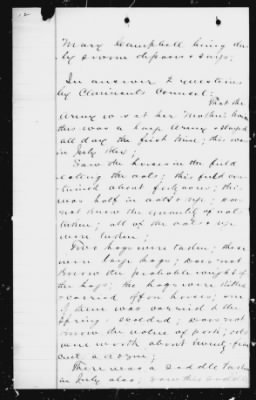 Mary Campbell being du-
ly sworn deposes & says;
In answer to questions
by Claimants Counsel:
That the
Army was at her Mother's
this was a large Army & stayed
all day the first time; this was
in July 1863;
Saw the horses in the field
eating the oats; this field con-
tained about forty acres; this
was half in oats & rye; do-
not know the quantity of oats
taken; all of the oats & rye
were taken;
Five hogs were taken; these
were large hogs; does not
know the probable weight of
the hogs; the hogs were killed
& carried off on horses; one
of them was carried to the
Spring & scalded; does not
know the value of pork; oats
were worth about twenty five
cents a dozen;
There was a saddle taken
in July also; saw the